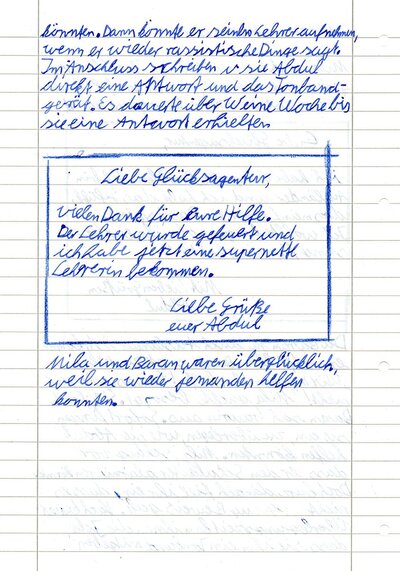 könnten. Dann könnte er seinen Lehrer aufnehmen,
wenn er wieder rassistische Dinge sagt.
Im Anschluss schreiben sie Abdul
direkt eine Antwort und das Tonband-
gerät. Es dauerte über eine Woche bis
sie eine Antwort erhielten
Liebe Glücksagentur,
vielen Dank für eure Hilfe.
Der Lehrer wurde gefeuert und
ich habe jetzt eine supernette
Lehrerin bekommen.
Liebe Grüße
euer Abdul
Mila und Baran waren überglücklich,
weil sie wieder jemanden helfen
konnten.